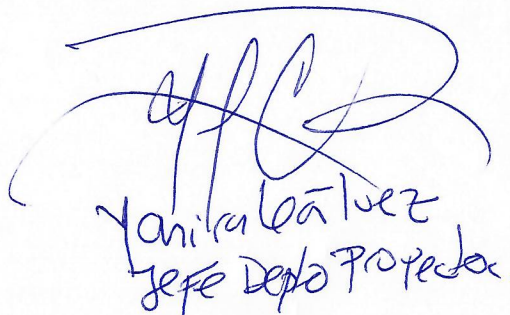 Yanira Gálvez
Jefe Depto Proyectos